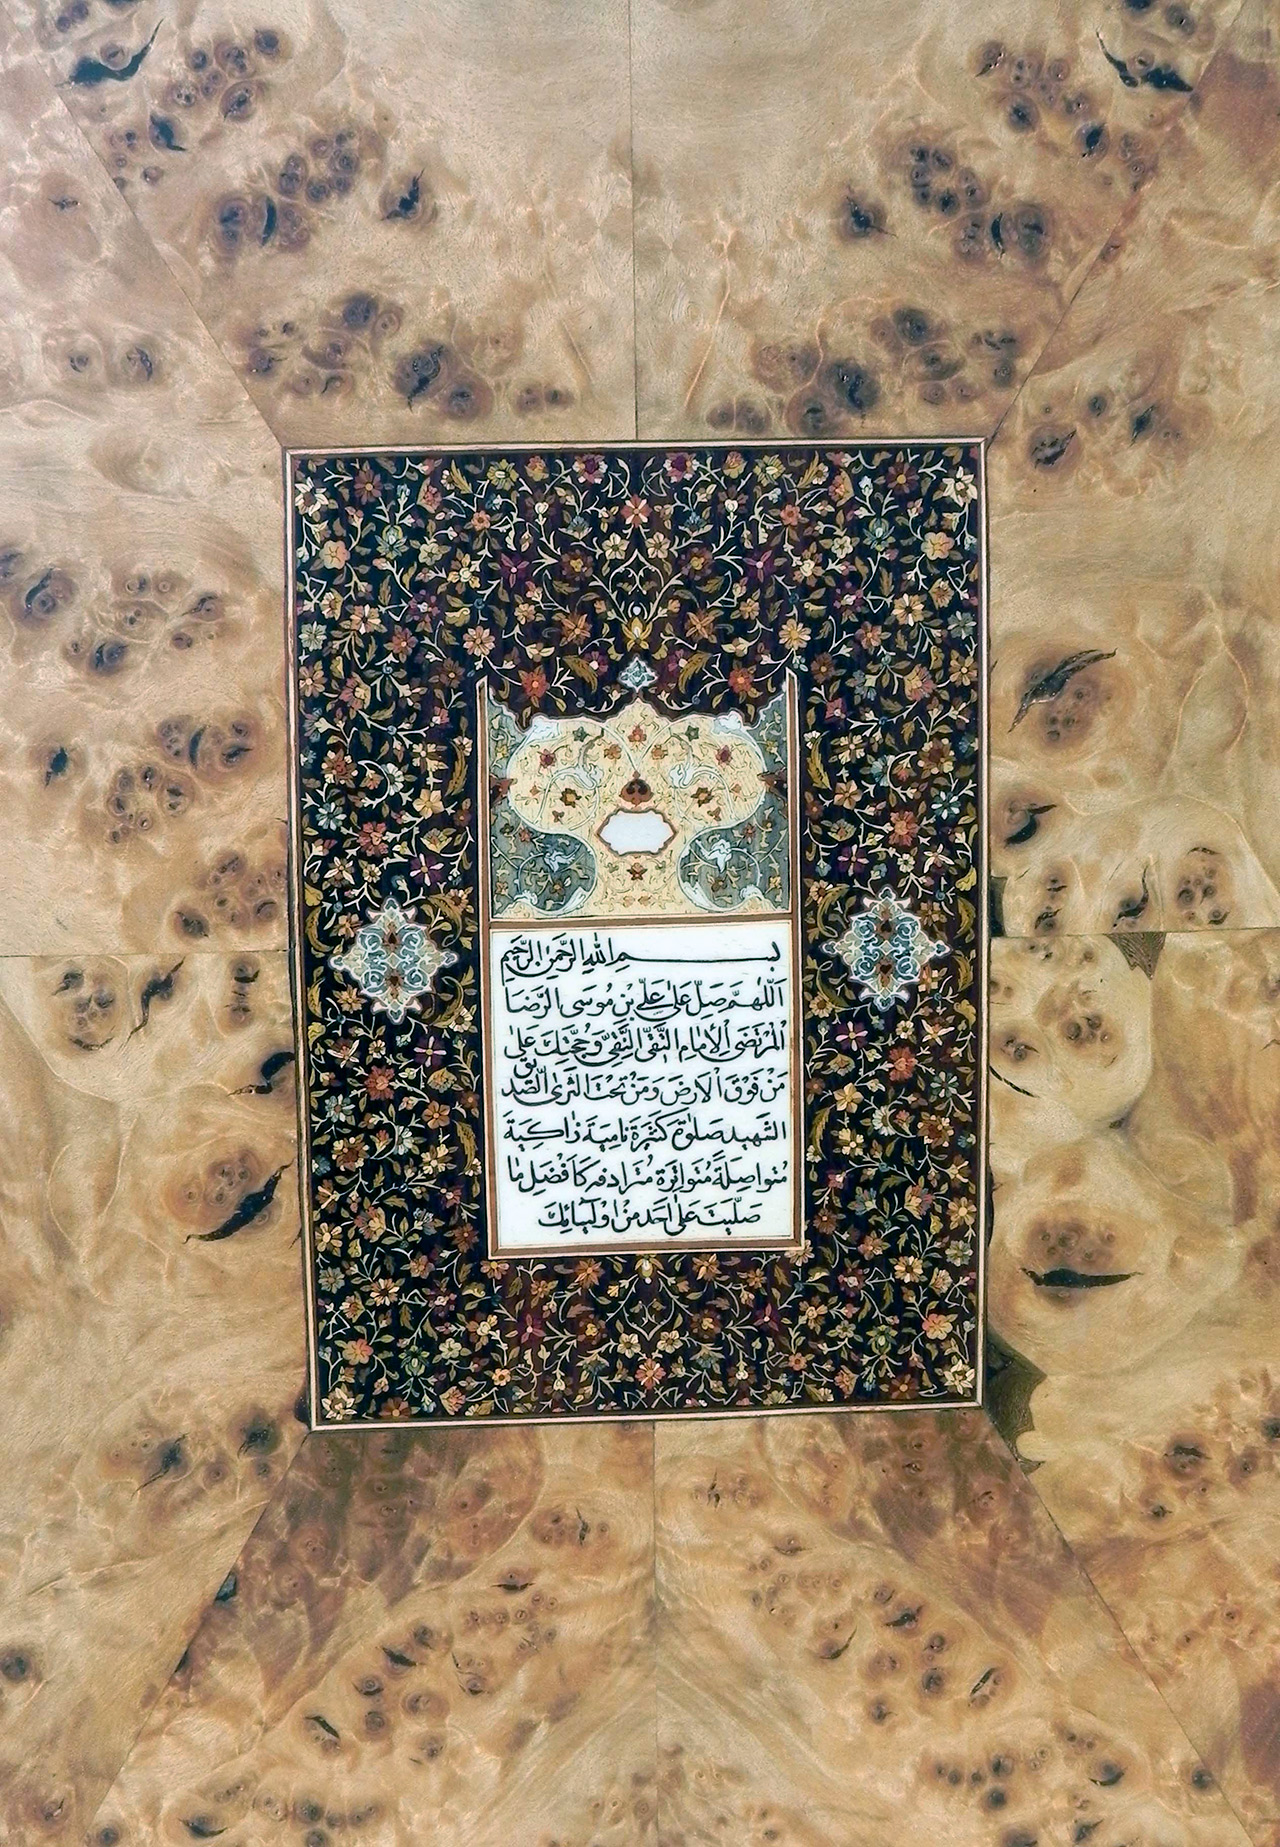 بسم الله الرحمن الرحیم
اَللّٰهُمَّ صَلِّ عَلٰى عَلِيِّ بْنِ مُوسَى الرِّضَا
الْمُرْتَضَى الْاِمَامِ التَّقِيِّ النَّقِيِّ وَحُجَّتِكَ عَلٰى
مَنْ فَوْقَ الْاَرْضِ وَمَنْ تَحْتَ الثَّرٰى الصِّدّيقِ
الشَّهيدِ صَلٰوةً كَثيرَةً نامِيَةً زاكِيَةً
مُتَواصِلَةً مُتَواتِرَةً مُتَرادِفَةً كَاَفْضَلِ ما
صَلَّيْتَ عَلٰى اَحَدٍ مِنْ اَوْلِيائِكَ